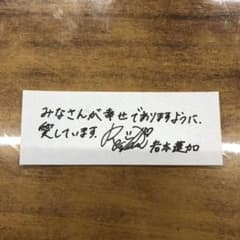 みなさんが幸せでありますように、
笑しています。 岩本蓮加